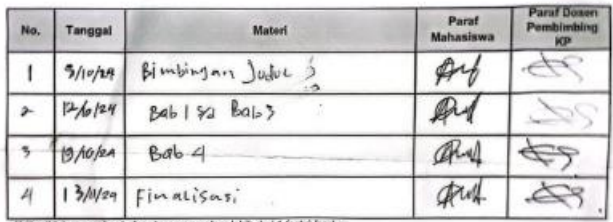 No. Tanggal Materi Paraf Mahasiswa Paraf Dosen Pembimbing KP
1 5/10/24 Bimbingan Judul
2 12/10/24 Bab 1 sd Bab 3
3 19/10/24 Bab 4
4 13/11/24 Finalisasi